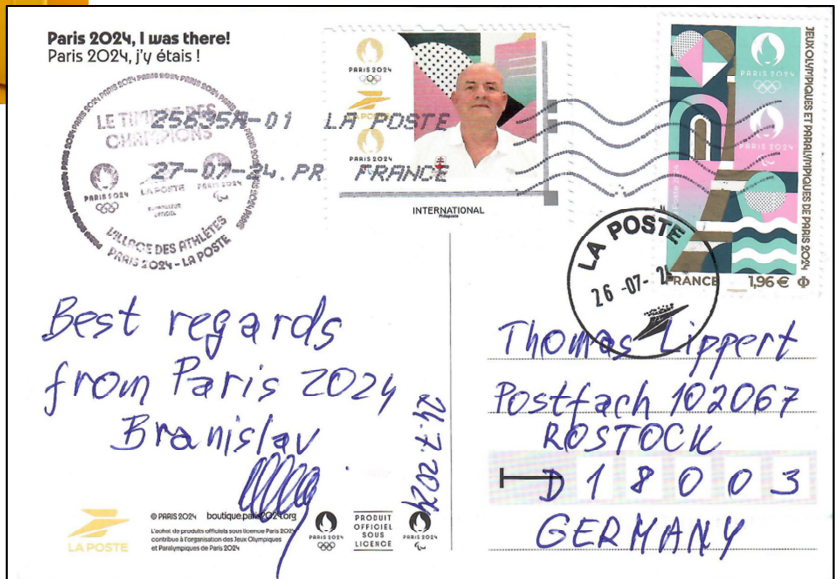 Paris 2024, I was there!
Paris 2024, j'y étais !
PARIS 2024 PARIS 2024 PARIS 2024 PARIS 2024 PARIS 2024
LE TIMBRE DES
CHAMPIONS
PARIS 2024
LA POSTE
PARIS 2024
VILLAGE DES ATHLÈTES
PARIS 2024 - LA POSTE
25635A-01 LA POSTE
27-07-24.PR FRANCE
PARIS 2024
PARIS 2024
INTERNATIONAL
Philaposte
JEUX OLYMPIQUES ET PARALYMPIQUES DE PARIS 2024
PARIS 2024
PARIS 2024
FRANCE 1,96 €
LA POSTE
26-07-24
Best regards
from Paris 2024
Branislav
24.7.2024
Thomas Lippert
Postfach 102067
ROSTOCK
D 18003
GERMANY
LA POSTE
© PARIS 2024 boutique.paris2024.org
L'achat de produits officiels sous licence Paris 2024
contribue à l'organisation des Jeux Olympiques
et Paralympiques de Paris 2024
PARIS 2024
PRODUIT
OFFICIEL
SOUS
LICENCE
PARIS 2024